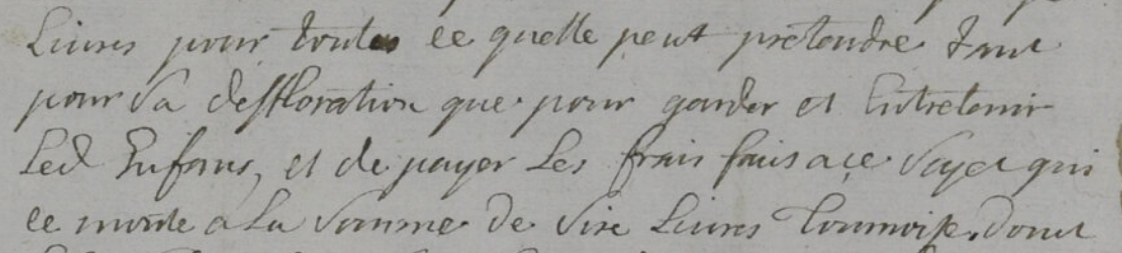 Liures pour toutes ce quelle peut pretendre tant
pour sa deffloration que pour garder et Entretenir
Led Enfans, et de payer Les frais fais a çe sujet qui
ce monte a La somme de six Liures Tournoise, dont